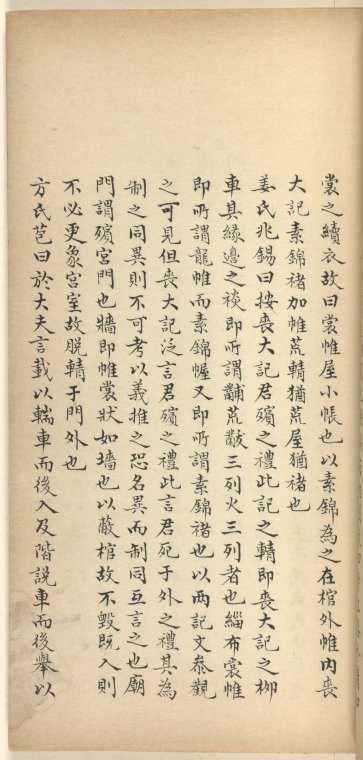 裳之續衣故曰裳帷屋小帳也以素錦為之在棺外帷內喪
大記素錦褚加帷荒輤猶荒屋猶褚也
姜氏兆錫曰按喪大記君殯之禮此記之輤即喪大記之柳
車其緣邊之裧即所謂黼荒黻三列火三列者也緇布裳帷
即所謂龍帷而素錦幄又即所謂素錦褚也以兩記文叅觀
之可見但喪大記泛言君殯之禮此言君死于外之禮其為
制之同異則不可考以義推之恐名異而制同互言之也廟
門謂殯宮門也牆即帷裳狀如墻也以蔽棺故不毀既入則
不必更象宮室故脫輤于門外也
方氏苞曰於大夫言載以輲車而後入及階說車而後舉以